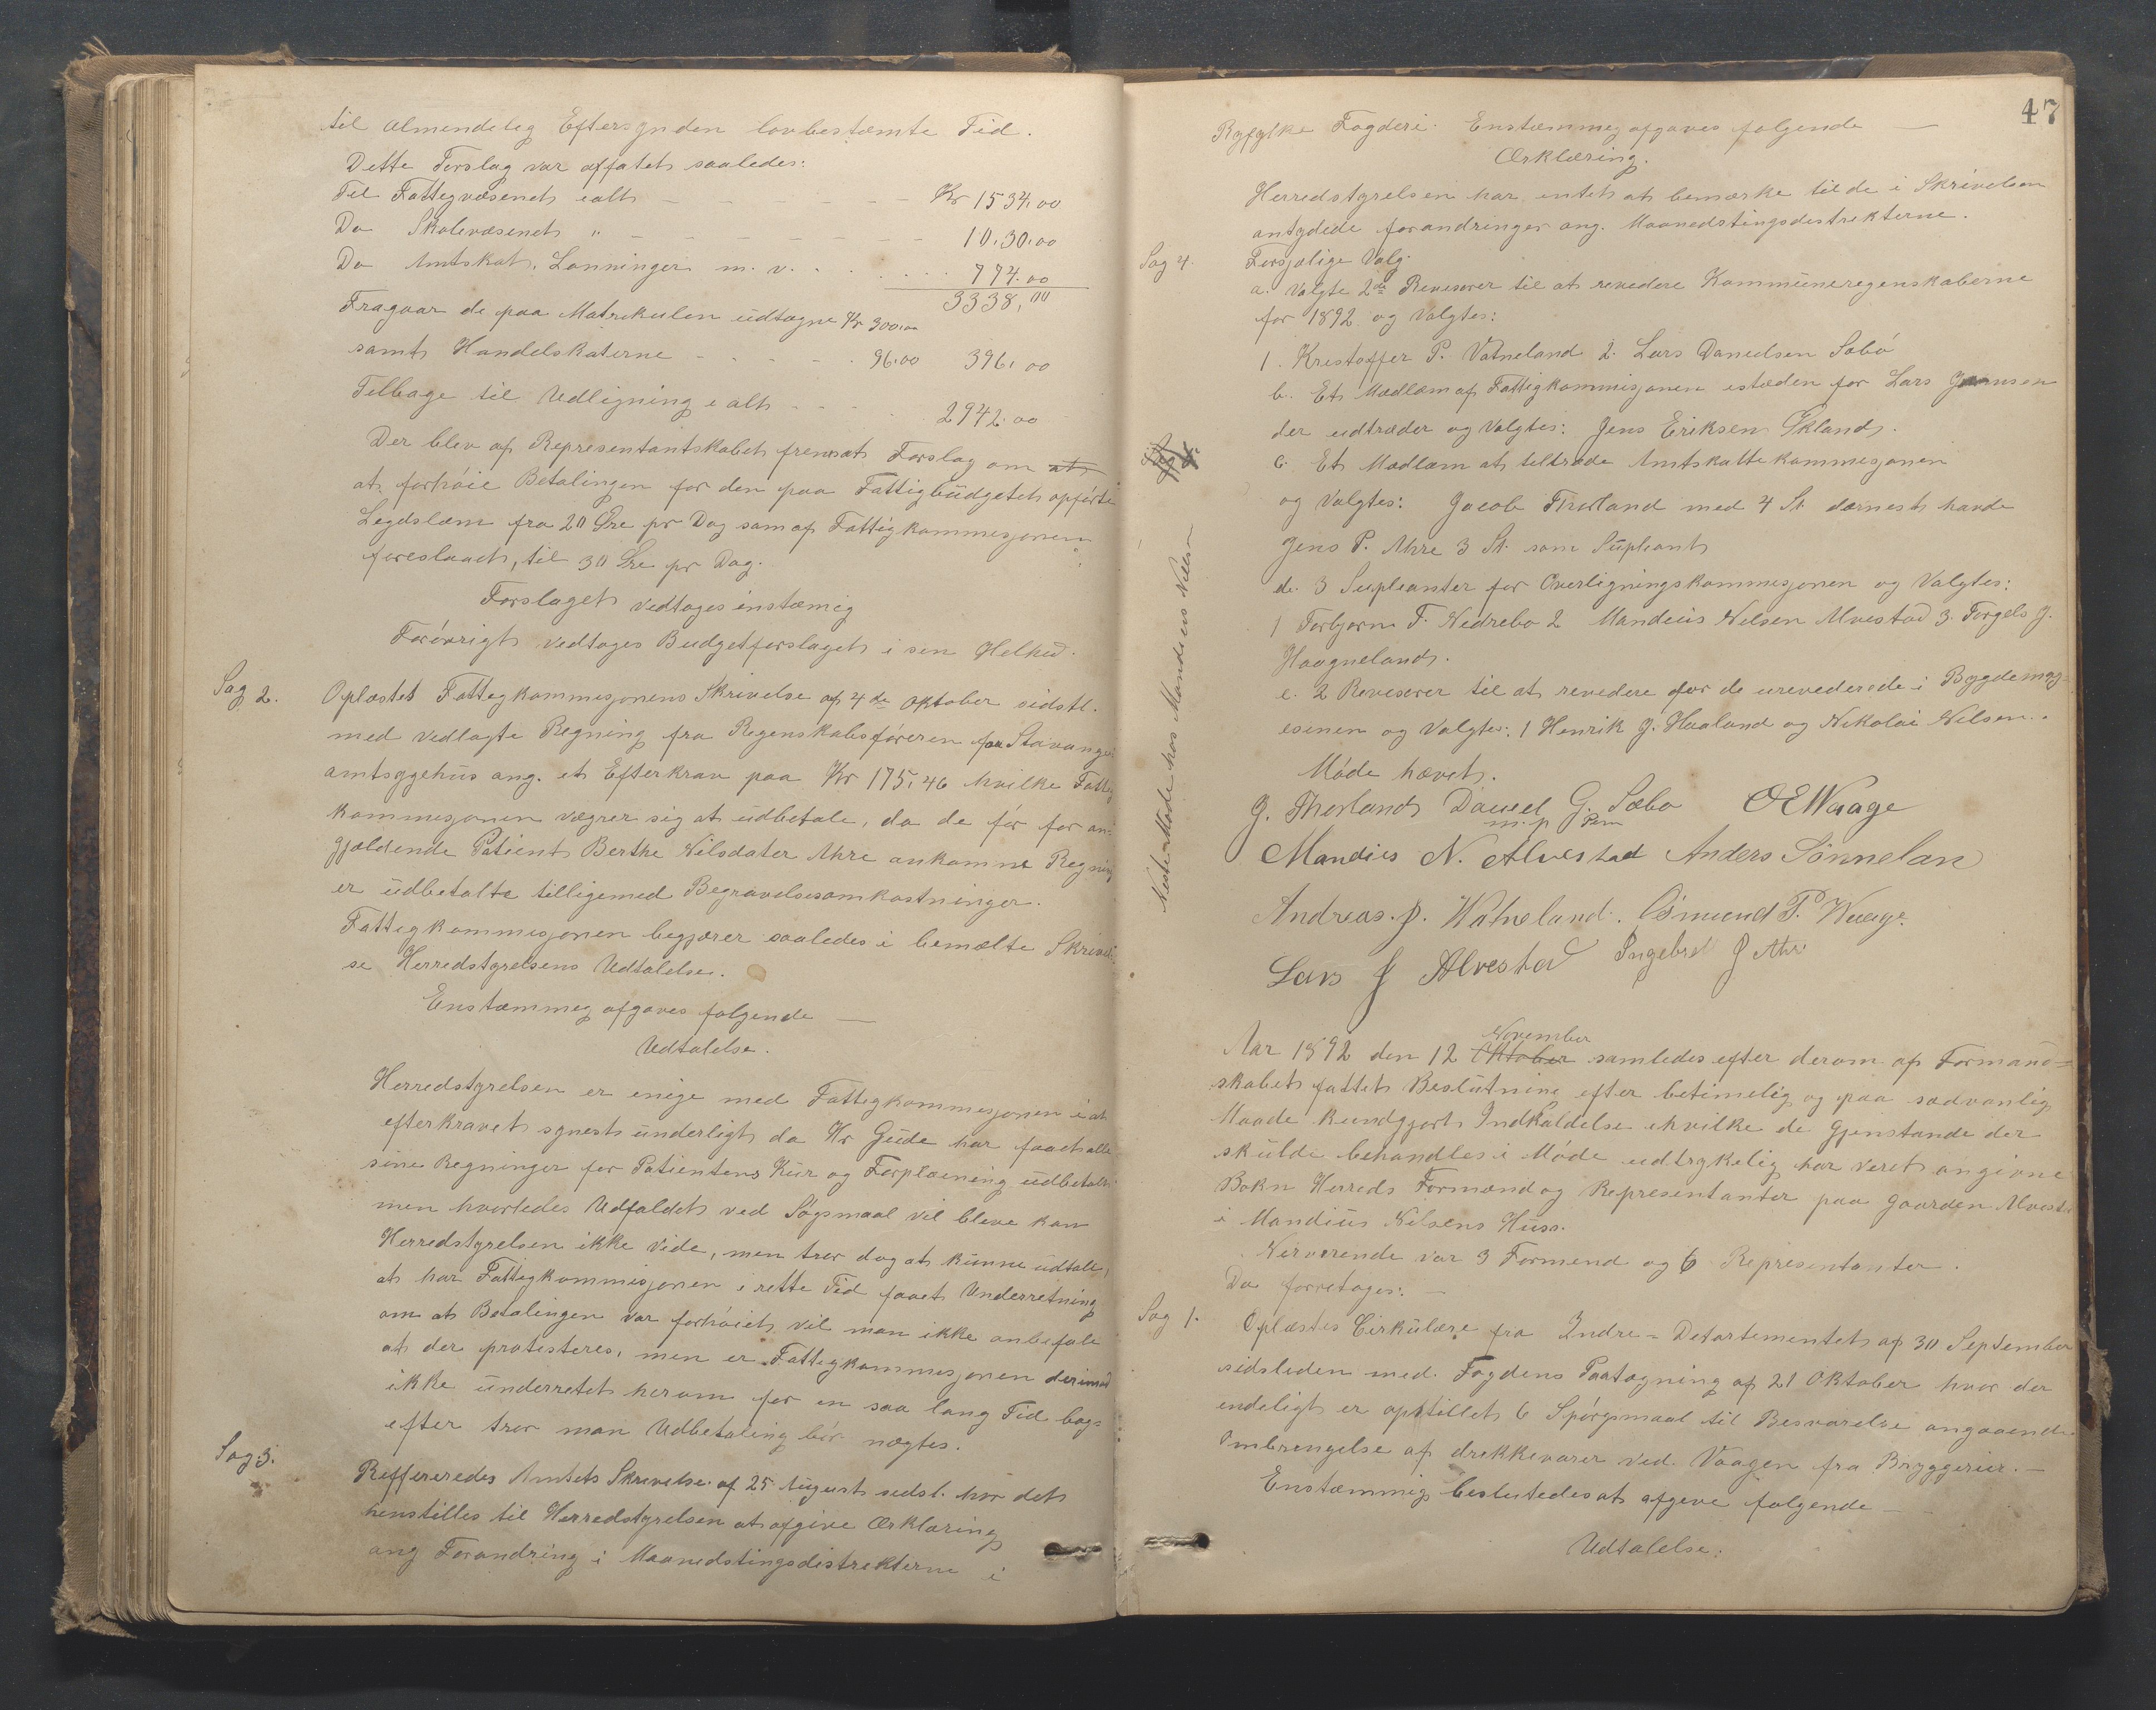 til almendelig Eftersyn den lovbestemte Tid.
Dette Forslag var affatet saaledes:
Til Fattigvæsenet ialt - - - - - - Kr 1534.00
Do Skolevæsenet " - - - - - - - 10.30.00
Do Amtskat, Lønninger m. v. . . . . . . . 774.00
3338,00
Fragaar de paa Matrikulen udtagne Kr 300.00
samt Handelskaterne - - - - - 96.00 396,00
Tilbage til Udligning ialt - - - - 2942.00
Der blev af Representantskabet fremsat Forslag om at
at forhöie Betalingen for den paa Fattigbudgetet opførte
Legdslem fra 20 Øre pr Dag som af Fattigkommisjonen
foreslaaet, til 30 Øre pr Dag.
Forslaget vedtoges enstæmig
Forövrigt vedtoges Budgetforslaget i sin Helhed.
Sag 2.
Oplæstes Fattigkommisjonens Skrivelse af 4de Oktober sidstl.
med vedlagte Regning fra Regenskabsföreren for Stavanger
amtssygehus ang. et Efterkrav paa Kr 175,46 hvilke Fattig
kommisjonen vægrer sig at udbetale, da de för for an-
gjældende Patient Berthe Nilsdater Ahre ankomne Regning
er udbetalte tilligemed Begravelsesomkostninger.
Fattigkommisjonen begjærer saaledes i bemælte Skrivel-
se Herredstyrelsens Udtalelse.
Enstæmmeg afgaves følgende —
Udtalelse.
Herredstyrelsen er enige med Fattigkommisjonen i at
efterkravet synest underligt da Hr Gude har faaet alle
sine Regninger for Patientens Kur og Forpleining udbetalt
men hvorledes Udfaldet ved Søgsmaal vil bleve kan
Herredstyrelsen ikke vide, men tror dog at kunne udtale,
at har Fattigkommisjonen i rette Tid faaet Underretning
om at Betalingen var forhöiet, vil man ikke anbefale
at der protesteres, men er Fattigkommisjonen derimod
ikke underretet herom for en saa lang Tid bag-
efter tror man Udbetaling bör nægtes.
Sag 3.
Reffereredes Amtets Skrivelse af 25 August sidsl. hvor det
henstilles til Herredstyrelsen at afgive Ærklæring
ang Forandring i Maanedstingsdistrikterne i
47
Ryfylke Fogderi. Enstæmmeg afgaves følgende —
Ærklæring.
Herredstyrelsen har entet at bemærke til de i Skrivelsen
antydede forandringer ang. Maanedstingsdestrekterne.
Sag 4.
Forsjelige Valg.
a. Valgte 2de Revisorer til at revedere Kommuneregenskaberne
for 1892 og Valgtes:
1. Kristoffer P. Vatneland 2. Lars Danielsen Sæbö
b. Et Medlem af Fattigkommisjonen istæden for Lars
der udtræder og Valgtes: Jens Eriksen Økland.
c. Et Medlæm at teltræde Amtskattekommisjonen
og Valgtes: Jacob Thorland med 4 St. dernest havde
Jens P. Ahre 3 St. som Supleant
d. 3 Supleanter for Overligningskommisjonen og Valgtes:
1 Torbjørn T. Nedrebø 2 Mandius Nelsen Alvestad 3. Torgels J.
Haagneland.
e. 2 Revisorer til at revedere for de urevederede i Bygdemag-
esinen og Valgtes: 1 Henrik J. Haaland og Nekolai Nelsen.
Möde hævet.
J. Thorland Daniel G. Sæbø OE Waage
m. p Pen
Mandies N. Alvestad Anders Sönnelan
Andreas. J. Watneland. Osmund T. Waage
Lars J Alvestad Ingebret J Ahre
Neste Möde hos Mandius Nilsen
November
Aar 1892 den 12 Oktober samledes efter derom af Formand-
skabet fattet Beslutning efter betimelig og paa sædvanlig
Maade kundgjort Indkaldelse i hvilke de Gjenstande der
skulde behandles i Möde udtrykelig har veret angivne
Bokn Herreds Formænd og Representanter paa Gaarden Alvestad
i Mandius Nelsens Huss.
Nerverende var 3 Formend og 6 Representanter.
Da forretages: —
Sag 1.
Oplæstes Cirkulære fra Indre-Detartementet af 30 September
sidsleden med Fogdens Paategning af 21 Oktober hvor der
endeligt er opstillet 6 Spørgsmaal til Besvarelse angaaende
Ombrengelse af drekkevarer ved Vaagen fra Bryggerier. —
Enstæmmig beslutedes at afgeve følgende —
Udtalelse: